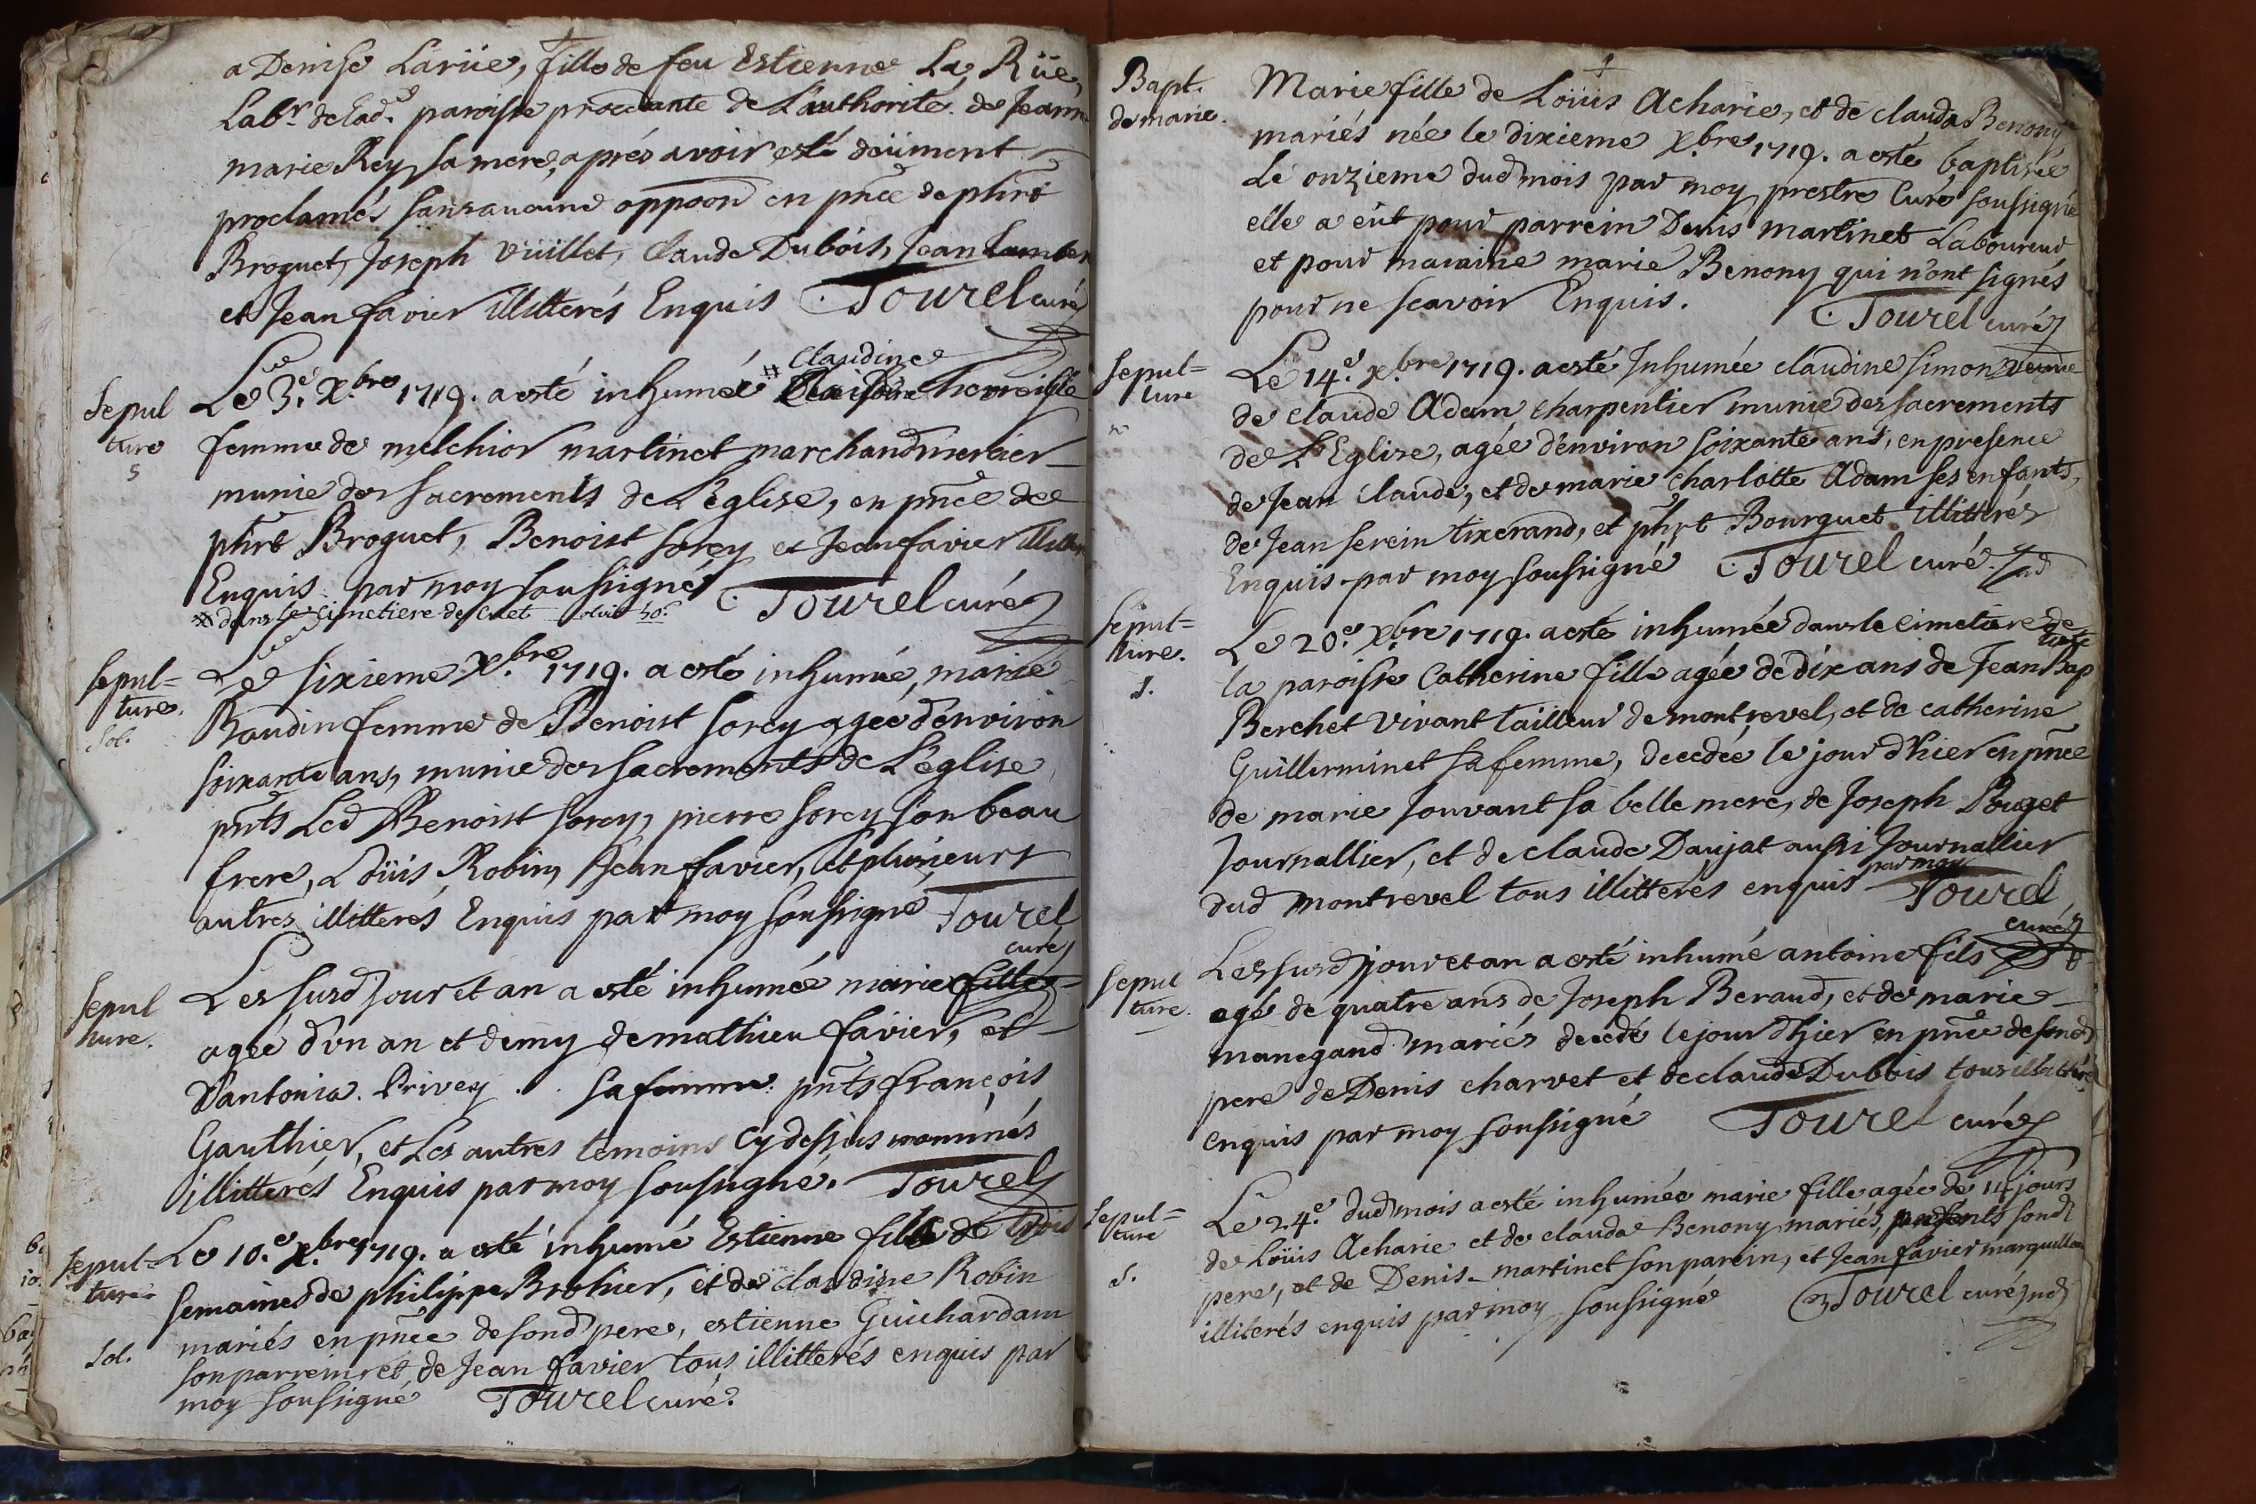 a Denise Larüe, fille de feu Estienne La Rüe,
Labr. de lad.e paroisse procedante de L'authorité de Jeanne
marie Rey sa mere, aprés avoir esté deüment
proclamés sans aucune oppoõn en pñce de phirt
Broquet, Joseph Vüillet, Claude Dubois, Jean Lamber
et Jean favier illitterés Enquis C. Tourel curé
Sepul
ture
5
Le 3.e X.bre 1719. a esté inhumée # Claudine
femme de melchior martinet marchand mercier
munie des sacrements de L'église, en pñce de
phirt Broquet, Benoist sorey et Jean favier illitter
Enquis par moy soussigné C. Tourel curé
# dans le cimetiere de Cuet
Sepul=
ture.
Sol.
Le sixieme X.bre 1719. a esté inhumée, marie
Baudin femme de Benoist sorey agée d'environ
soixante ans, munie des sacrements de L'église
pñts Led Benoist sorey, pierre sorey son beau
frere, Loüis Robin, Jean favier, et plusieurs
autres illitterés Enquis par moy soussigné Tourel
curé
Sepul
ture.
Les susd jour et an a esté inhumée marie fille
agée d'vn an et demy de mathieu favier, et
D'antonia Privey sa femme pñts françois
Gauthier, et Les autres temoins cy dessus nommés
illitterés Enquis par moy soussigné. Tourel
Sepul=
ture
Sol.
Le 10.e X.bre 1719. a esté inhumé Estienne fils de trois
semaines de philippe Brohier, et de claudine Robin
mariés en pñce de sond pere, estienne Guichardam
son parrein et de Jean favier tous illitterés enquis par
moy soussigné Tourel curé.
Bapt.
de marie.
Marie fille de Loüis Acharie, et de clauda Benony
mariés née le dixieme X.bre 1719. a esté baptisée
Le onzieme dud mois par moy prestre Curé soussigné
elle a eüt pour parrein Denis martinet Laboureur
et pour maraine marie Benony qui n'ont signés
pour ne scavoir Enquis. C. Tourel curé
Sepul=
ture
Le 14.e X.bre 1719. a esté Inhumée claudine simon veuve
de claude Adam charpentier munie des sacrements
de L'Eglise, agée d'environ soixante ans, en presence
de Jean Claude, et de marie charlotte Adam ses enfants,
de Jean serein tixerand, et phirt Bourquet illitterés
Enquis par moy soussigné C. Tourel curé
Sepul=
ture.
s.
Le 20.e X.bre 1719. a esté inhumée dans le cimetiere de
la paroisse Catherine fille agée de dix ans de Jean Bap
tiste
Berchet vivant tailleur de montrevel, et de catherine
Guillerminet sa femme, decedée le jour d'hier en pñce
de marie Jouvant sa belle mere, de Joseph Pouget
Journallier, et de claude Daujat aussi Journallier
dud montrevel tous illitterés enquis par moy Tourel
curé
Sepul
ture.
Les susd jour et an a esté inhumé antoine fils
agé de quatre ans de Joseph Beraud, et de marie
manegand mariés decedé le jour d'hier en pñce de sond
pere de Denis charvet et de claude Dubois tous illitterés
enquis par moy soussigné Tourel curé
Sepul=
ture
s.
Le 24.e dud mois a esté inhumée marie fille agée de 14 jours
de Loüis Acharie et de clauda Benony mariés, presents sond
pere, et de Denis martinet son parein, et Jean favier marguillier
illiterés enquis par moy soussigné Tourel curé